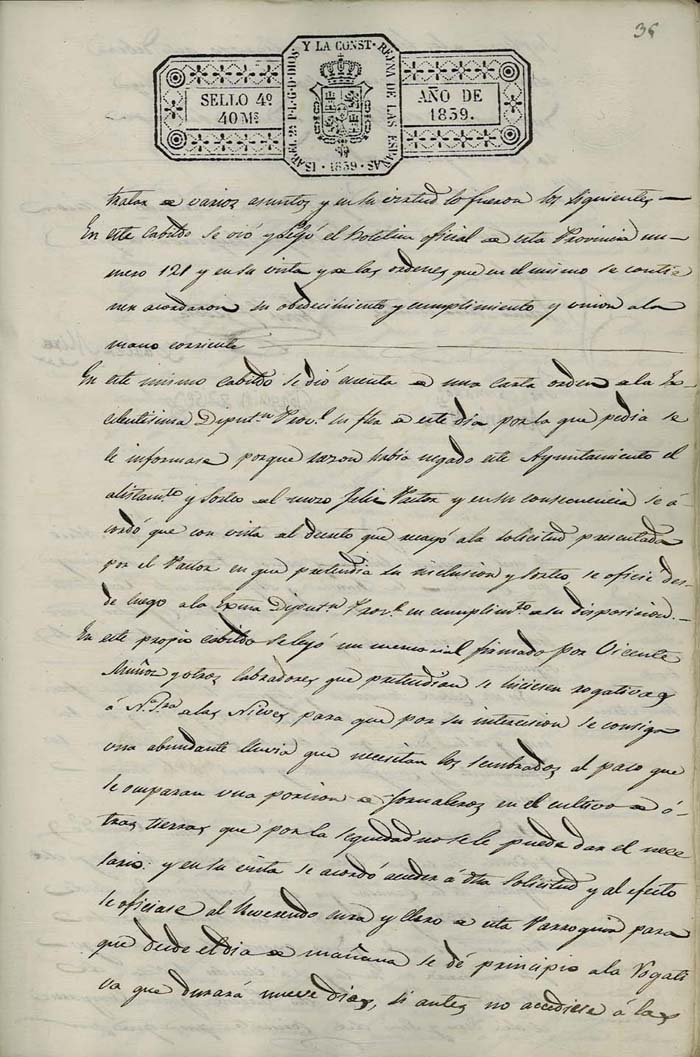 36
SELLO 4º
40 Ms
ISABEL 2ª P.L.G.D.DIOS Y LA CONST. REYNA DE LAS ESPAÑAS
1839
AÑO DE
1839.
tratar de varios asuntos y en su virtud lo fueron los siguientes
En este cabildo se vió y leyó el Boletin oficial de esta Provincia nu-
mero 121 y en su vista y de las ordenes que en el mismo se contie
nen acordaron su obedecimiento y cumplimiento y union a la
mano corriente
En este mismo cabildo se dió cuenta de una carta orden de la Ex
celentisima Diputn Provl su fha de este dia por la que pedia se
le informase porque razon habia negado este Ayuntamiento el
alistamto y sorteo del mozo Felix Pastor y en su consecuencia se a-
cordó que con vista del decreto que recayó a la solicitud presentada
por el Pastor en que pretendia su inclusion y sorteo, se oficie des-
de luego a la Exma Diputn Provl en cumplimto de su disposicion.
En este propio cabildo se leyó un memorial firmado por Vicente
Muñoz y otros labradores que pretendian se hiciesen rogativas
á N. Sra de las Nieves para que por su intercesion se consiga
una abundante lluvia que necesitan los sembrados, al paso que
se ocuparan una porcion de jornaleros en el cultivo de ó-
tras tierras que por la sequedad no se le puede dar el nece
sario: y en su vista se acordó acceder á dha solicitud y al efecto
se oficiase al Reverendo cura y clero de esta Parroquia para
que desde el dia de mañana se dé principio a la Rogati
va que durará nueve dias, si antes no accediese á las